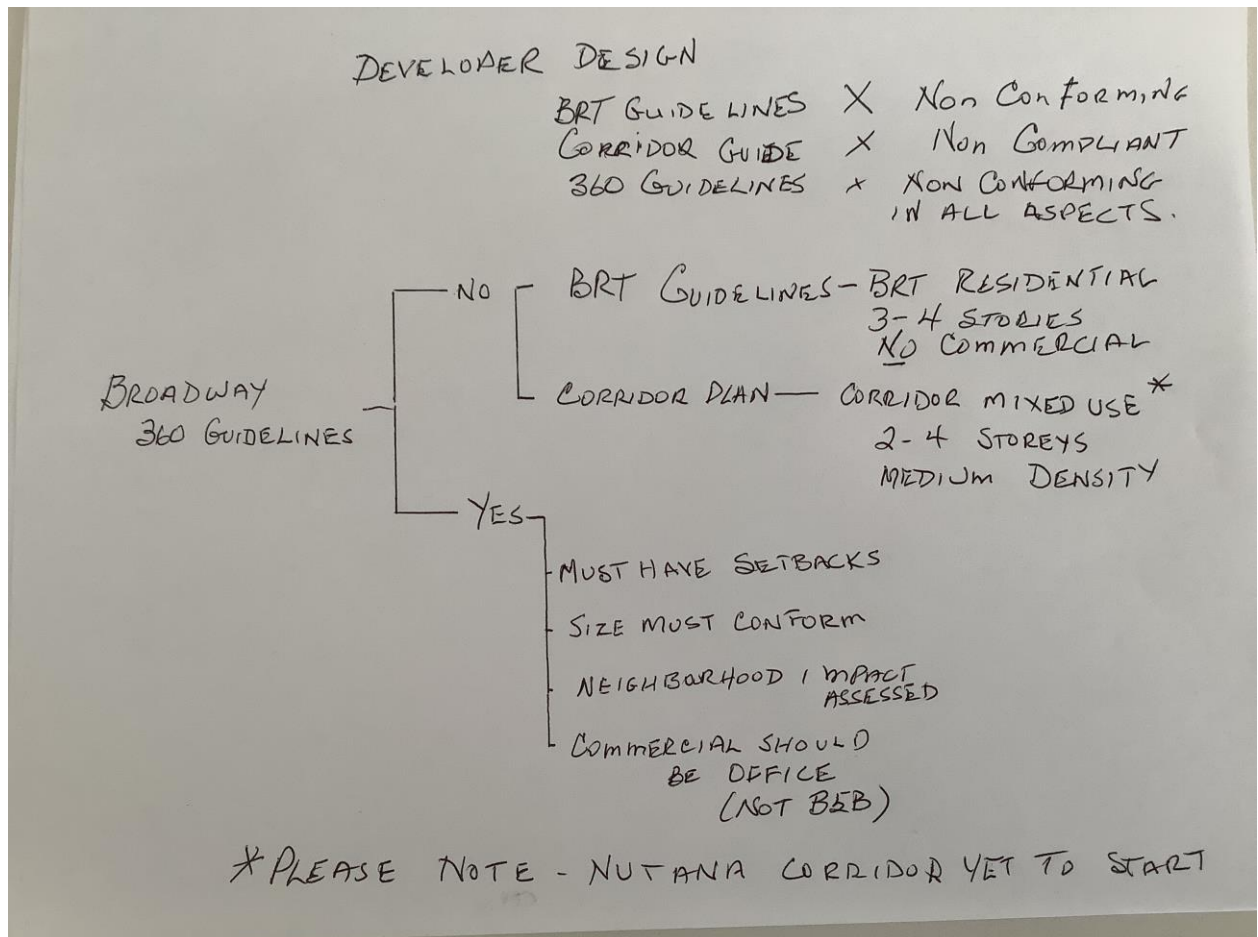 DEVELOPER DESIGN
BRT GUIDELINES X Non ConFORMING
CORRIDOR GUIDE X Non COMPLIANT
360 GUIDELINES x NON CONFORMING
IN ALL ASPECTS.
NO BRT GUIDELINES - BRT RESIDENTIAL
3-4 STORIES
NO COMMERCIAL
BROADWAY
360 GUIDELINES
CORRIDOR PLAN - CORRIDOR MIXED USE *
2-4 STOREYS
MEDIUM DENSITY
YES
MUST HAVE SETBACKS
SIZE MUST CONFORM
NEIGHBORHOOD IMPACT
ASSESSED
COMMERCIAL SHOULD
BE OFFICE
(NOT B&B)
* PLEASE NOTE - NUTANA CORRIDOR YET TO START